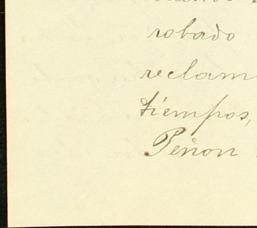 robado
reclam
tiempos,
Peñon